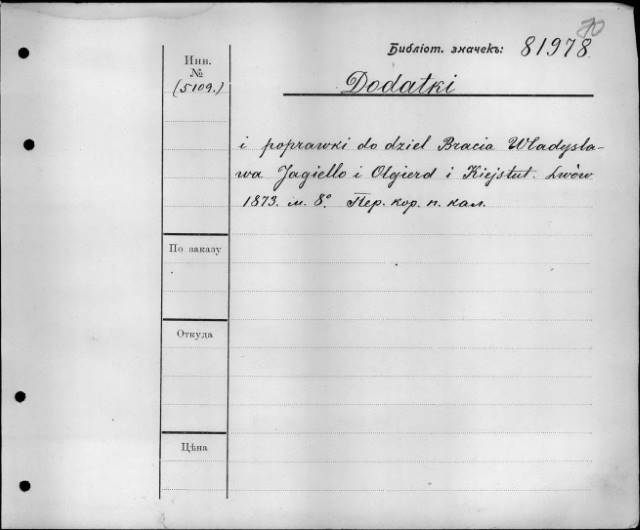 70
Библіот. значекъ: 81978
Инв.
№
(5109.)
Dodatki
i poprawki do dziel Bracia Wladysla-
wa Jagiello i Olgierd i Kiejstut. Lwów
1873. м. 8° Пер. кор. п. кал.
По заказу
Откуда
Цѣна